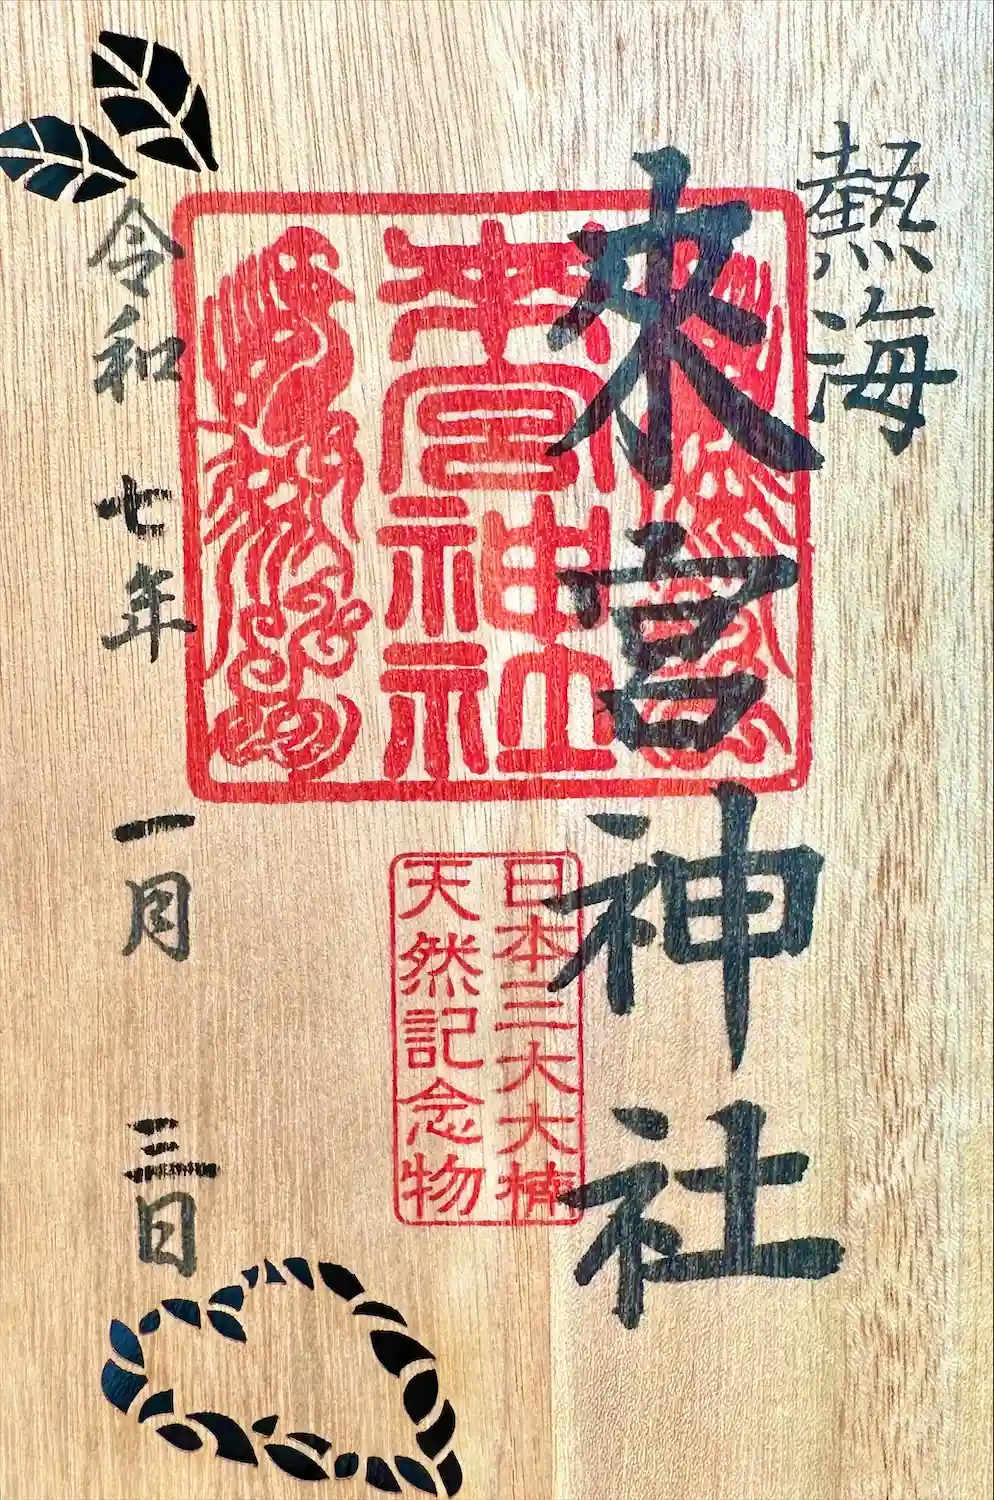 熱海
來宮神社
來宮神社
日本三大大楠
天然記念物
令和七年一月三日